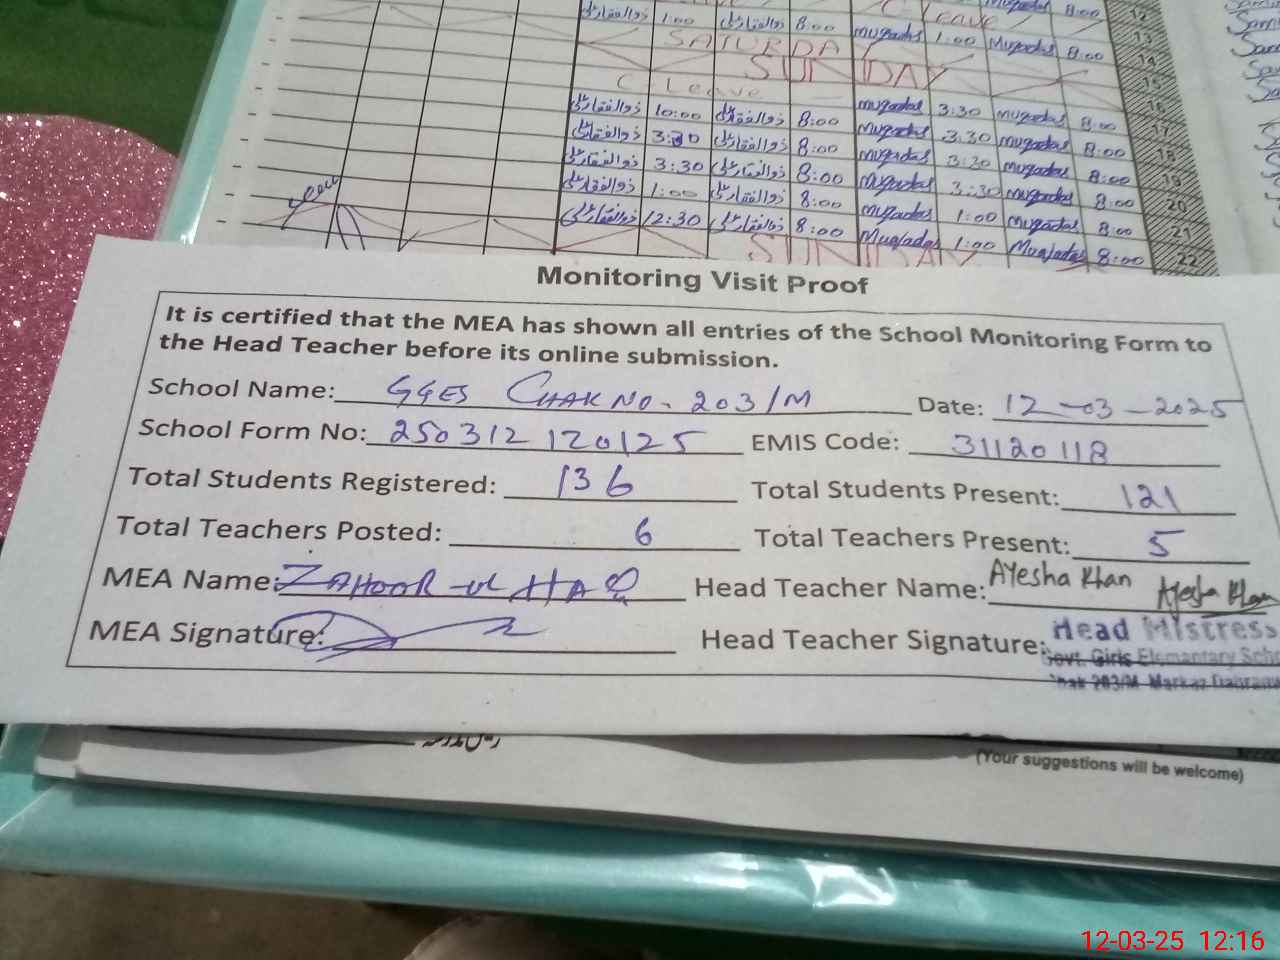 Leave
Mugadas 8:00 12
ذوالفقار علی 1:00 ذوالفقار علی 8:00 Mugadas 1:00 Mugadas 8:00 13
SATURDAY 14
SUNDAY 15
C Leave 16
ذوالفقار علی 10:00 ذوالفقار علی 8:00 Mugadas 3:30 Mugadas 8:00 17
ذوالفقار علی 3:30 ذوالفقار علی 8:00 Mugadas 3:30 Mugadas 8:00 18
ذوالفقار علی 3:30 ذوالفقار علی 8:00 Mugadas 3:30 Mugadas 8:00 19
ذوالفقار علی 1:00 ذوالفقار علی 8:00 Mugadas 3:30 Mugadas 8:00 20
ذوالفقار علی 12:30 ذوالفقار علی 8:00 Mugadas 1:00 Mugadas 8:00 21
SUNDAY Mugadas 1:00 Mugadas 8:00 22
Monitoring Visit Proof
It is certified that the MEA has shown all entries of the School Monitoring Form to
the Head Teacher before its online submission.
School Name: GGES CHAK NO. 203/M Date: 12-03-2025
School Form No: 250312120125 EMIS Code: 31120118
Total Students Registered: 136 Total Students Present: 121
Total Teachers Posted: 6 Total Teachers Present: 5
MEA Name: ZAHOOR-UL HAQ Head Teacher Name: AYesha Khan Ayesha Khan
MEA Signature: Head Teacher Signature: Head Mistress
Govt. Girls Elementary Scho
Chak 203/M Markaz
(Your suggestions will be welcome)
12-03-25 12:16